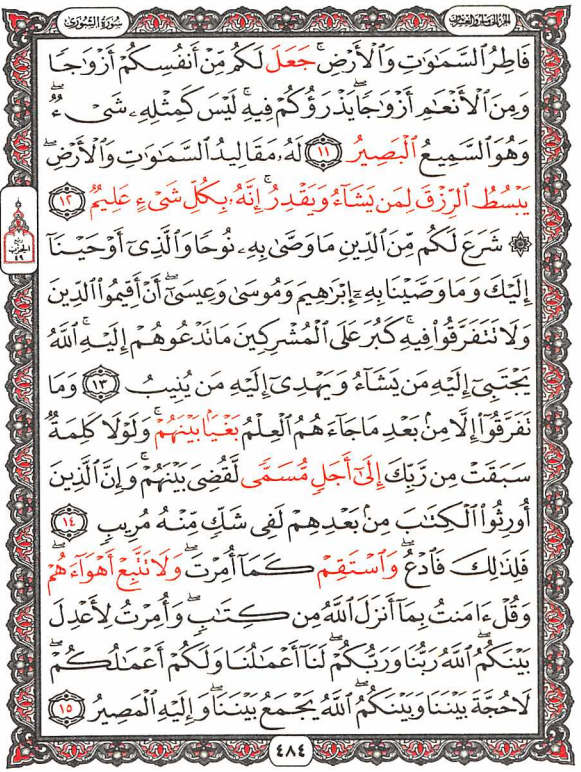 سُورَةُ الشُّورَىٰ
الجُزْءُ الخَامِسُ وَالعِشْرُونَ
فَاطِرُ ٱلسَّمَٰوَٰتِ وَٱلْأَرْضِ ۚ جَعَلَ لَكُم مِّنْ أَنفُسِكُمْ أَزْوَٰجًا
وَمِنَ ٱلْأَنْعَٰمِ أَزْوَٰجًا ۖ يَذْرَؤُكُمْ فِيهِ ۚ لَيْسَ كَمِثْلِهِۦ شَىْءٌ ۖ
وَهُوَ ٱلسَّمِيعُ ٱلْبَصِيرُ ١١ لَهُۥ مَقَالِيدُ ٱلسَّمَٰوَٰتِ وَٱلْأَرْضِ ۖ
يَبْسُطُ ٱلرِّزْقَ لِمَن يَشَآءُ وَيَقْدِرُ ۚ إِنَّهُۥ بِكُلِّ شَىْءٍ عَلِيمٌ ١٢
۞ شَرَعَ لَكُم مِّنَ ٱلدِّينِ مَا وَصَّىٰ بِهِۦ نُوحًا وَٱلَّذِىٓ أَوْحَيْنَآ
إِلَيْكَ وَمَا وَصَّيْنَا بِهِۦٓ إِبْرَٰهِيمَ وَمُوسَىٰ وَعِيسَىٰٓ ۖ أَنْ أَقِيمُوا۟ ٱلدِّينَ
وَلَا تَتَفَرَّقُوا۟ فِيهِ ۚ كَبُرَ عَلَى ٱلْمُشْرِكِينَ مَا تَدْعُوهُمْ إِلَيْهِ ۚ ٱللَّهُ
يَجْتَبِىٓ إِلَيْهِ مَن يَشَآءُ وَيَهْدِىٓ إِلَيْهِ مَن يُنِيبُ ١٣ وَمَا
تَفَرَّقُوٓا۟ إِلَّا مِنۢ بَعْدِ مَا جَآءَهُمُ ٱلْعِلْمُ بَغْيًۢا بَيْنَهُمْ ۚ وَلَوْلَا كَلِمَةٌ
سَبَقَتْ مِن رَّبِّكَ إِلَىٰٓ أَجَلٍ مُّسَمًّى لَّقُضِىَ بَيْنَهُمْ ۚ وَإِنَّ ٱلَّذِينَ
أُورِثُوا۟ ٱلْكِتَٰبَ مِنۢ بَعْدِهِمْ لَفِى شَكٍّ مِّنْهُ مُرِيبٍ ١٤
فَلِذَٰلِكَ فَٱدْعُ ۖ وَٱسْتَقِمْ كَمَآ أُمِرْتَ ۖ وَلَا تَتَّبِعْ أَهْوَآءَهُمْ ۖ
وَقُلْ ءَامَنتُ بِمَآ أَنزَلَ ٱللَّهُ مِن كِتَٰبٍ ۖ وَأُمِرْتُ لِأَعْدِلَ
بَيْنَكُمُ ۖ ٱللَّهُ رَبُّنَا وَرَبُّكُمْ ۖ لَنَآ أَعْمَٰلُنَا وَلَكُمْ أَعْمَٰلُكُمْ ۖ
لَا حُجَّةَ بَيْنَنَا وَبَيْنَكُمُ ۖ ٱللَّهُ يَجْمَعُ بَيْنَنَا ۖ وَإِلَيْهِ ٱلْمَصِيرُ ١٥
ربع
الحزب
٤٩
٤٨٤